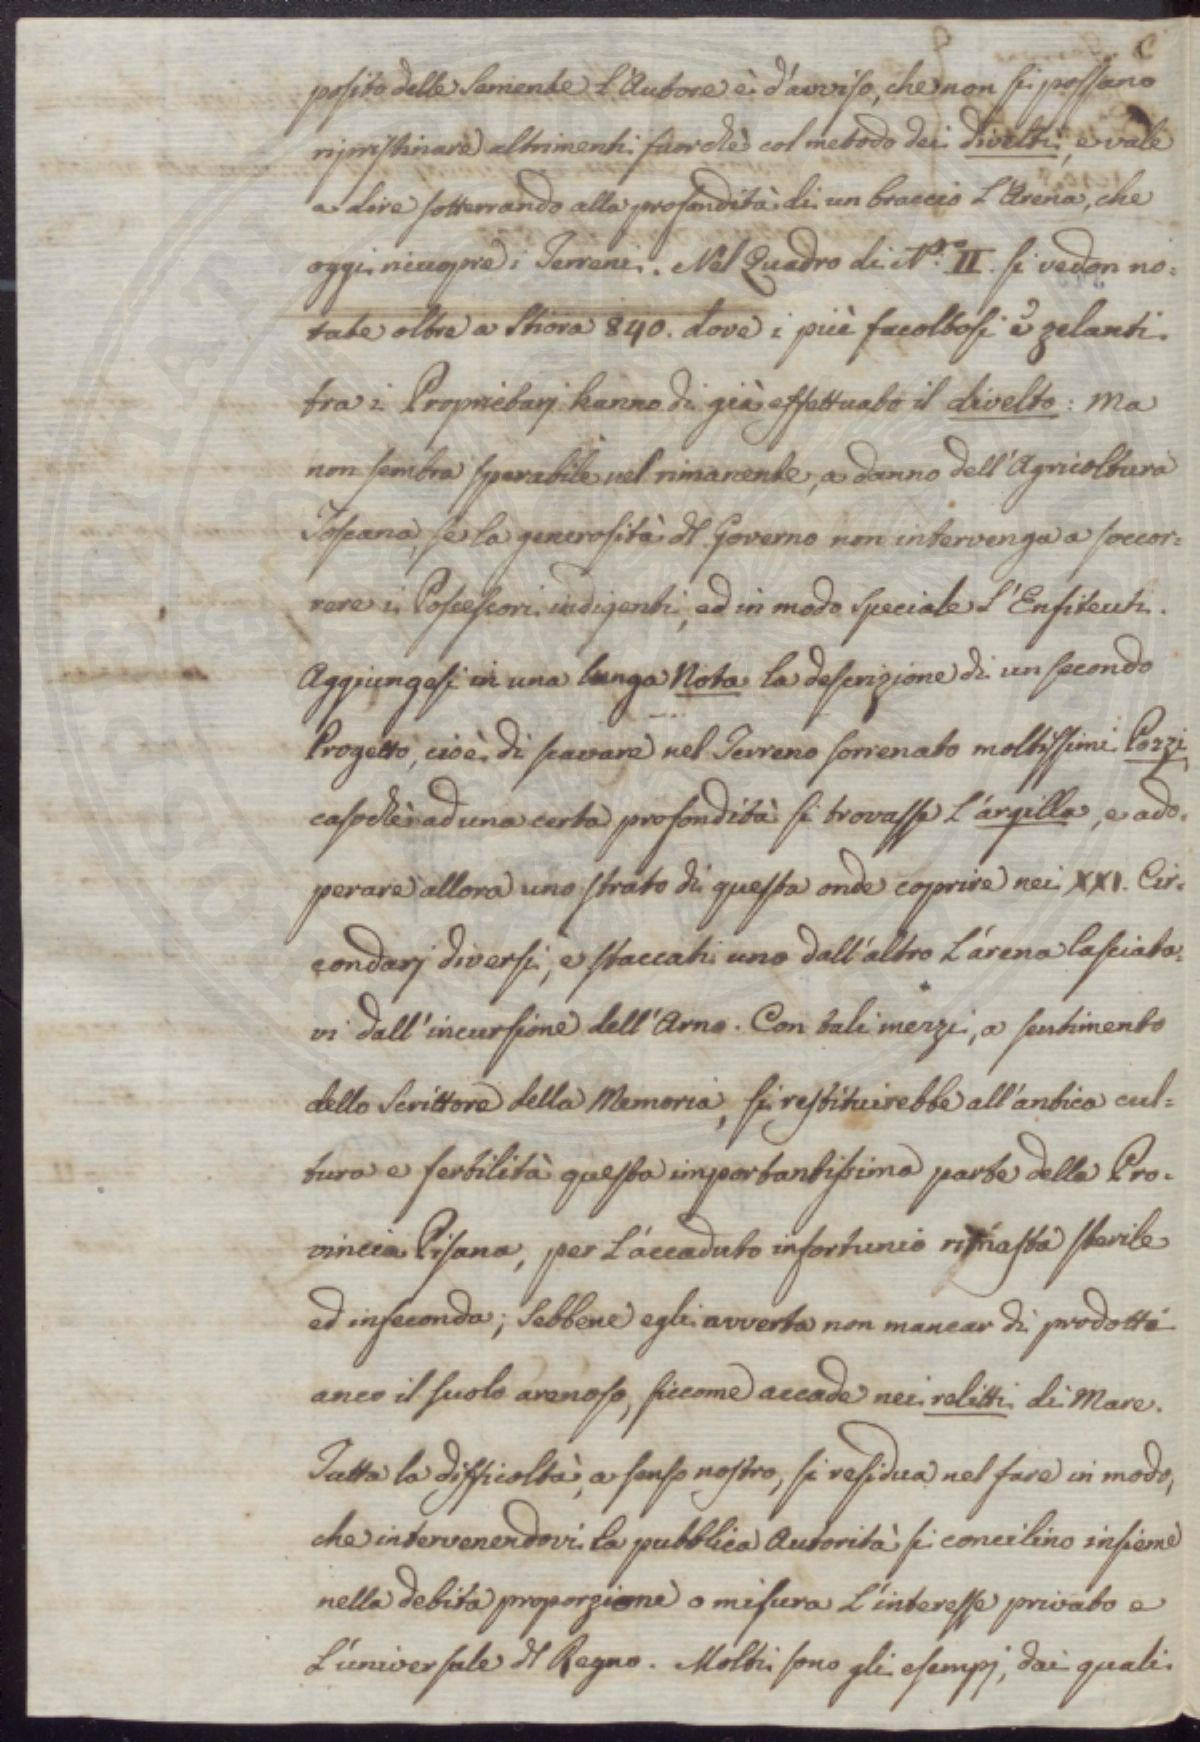 posito delle Semente L'Autore è d'avviso, che non si possano
ripristinare altrimenti fuorchè col metodo dei divelti, e vale
a dire sotterrando alla profondità di un braccio L'Arena, che
oggi ricuopre i Terreni. Nel Quadro di N.° II. si vedon no=
tate oltre a Stiora 840. dove i più facoltosi e zelanti
tra i Proprietarj hanno di già effettuato il divelto: Ma
non sembra sperabile nel rimanente, a danno dell'Agricoltura
Toscana, se la generosità del Governo non intervenga a soccor=
rere i Possessori indigenti, ed in modo speciale L'Enfiteuti.
Aggiungesi in una lunga Nota la descrizione di un secondo
Progetto, cioè di scavare nel Terreno sorrenato moltissimi Pozzi,
casochè ad una certa profondità si trovasse L'argilla, e ado=
perare allora uno strato di questa onde coprire nei XXI. Cir=
condarj diversi, e staccati uno dall'altro L'arena lasciata=
vi dall'incursione dell'Arno. Con tali mezzi, a sentimento
dello Scrittore della Memoria, si restituirebbe all'antica cul=
tura e fertilità questa importantissima parte della Pro=
vincia Pisana, per L'accaduto infortunio rimasta sterile
ed infeconda; Sebbene egli avverta non mancar di prodotti
anco il suolo arenoso, siccome accade nei relitti di Mare.
Tutta la difficoltà, a senso nostro, si residua nel fare in modo,
che intervenendovi la pubblica Autorità si concilino insieme
nella debita proporzione o misura L'interesse privato e
L'universale del Regno. Molti sono gli esempj, dai quali